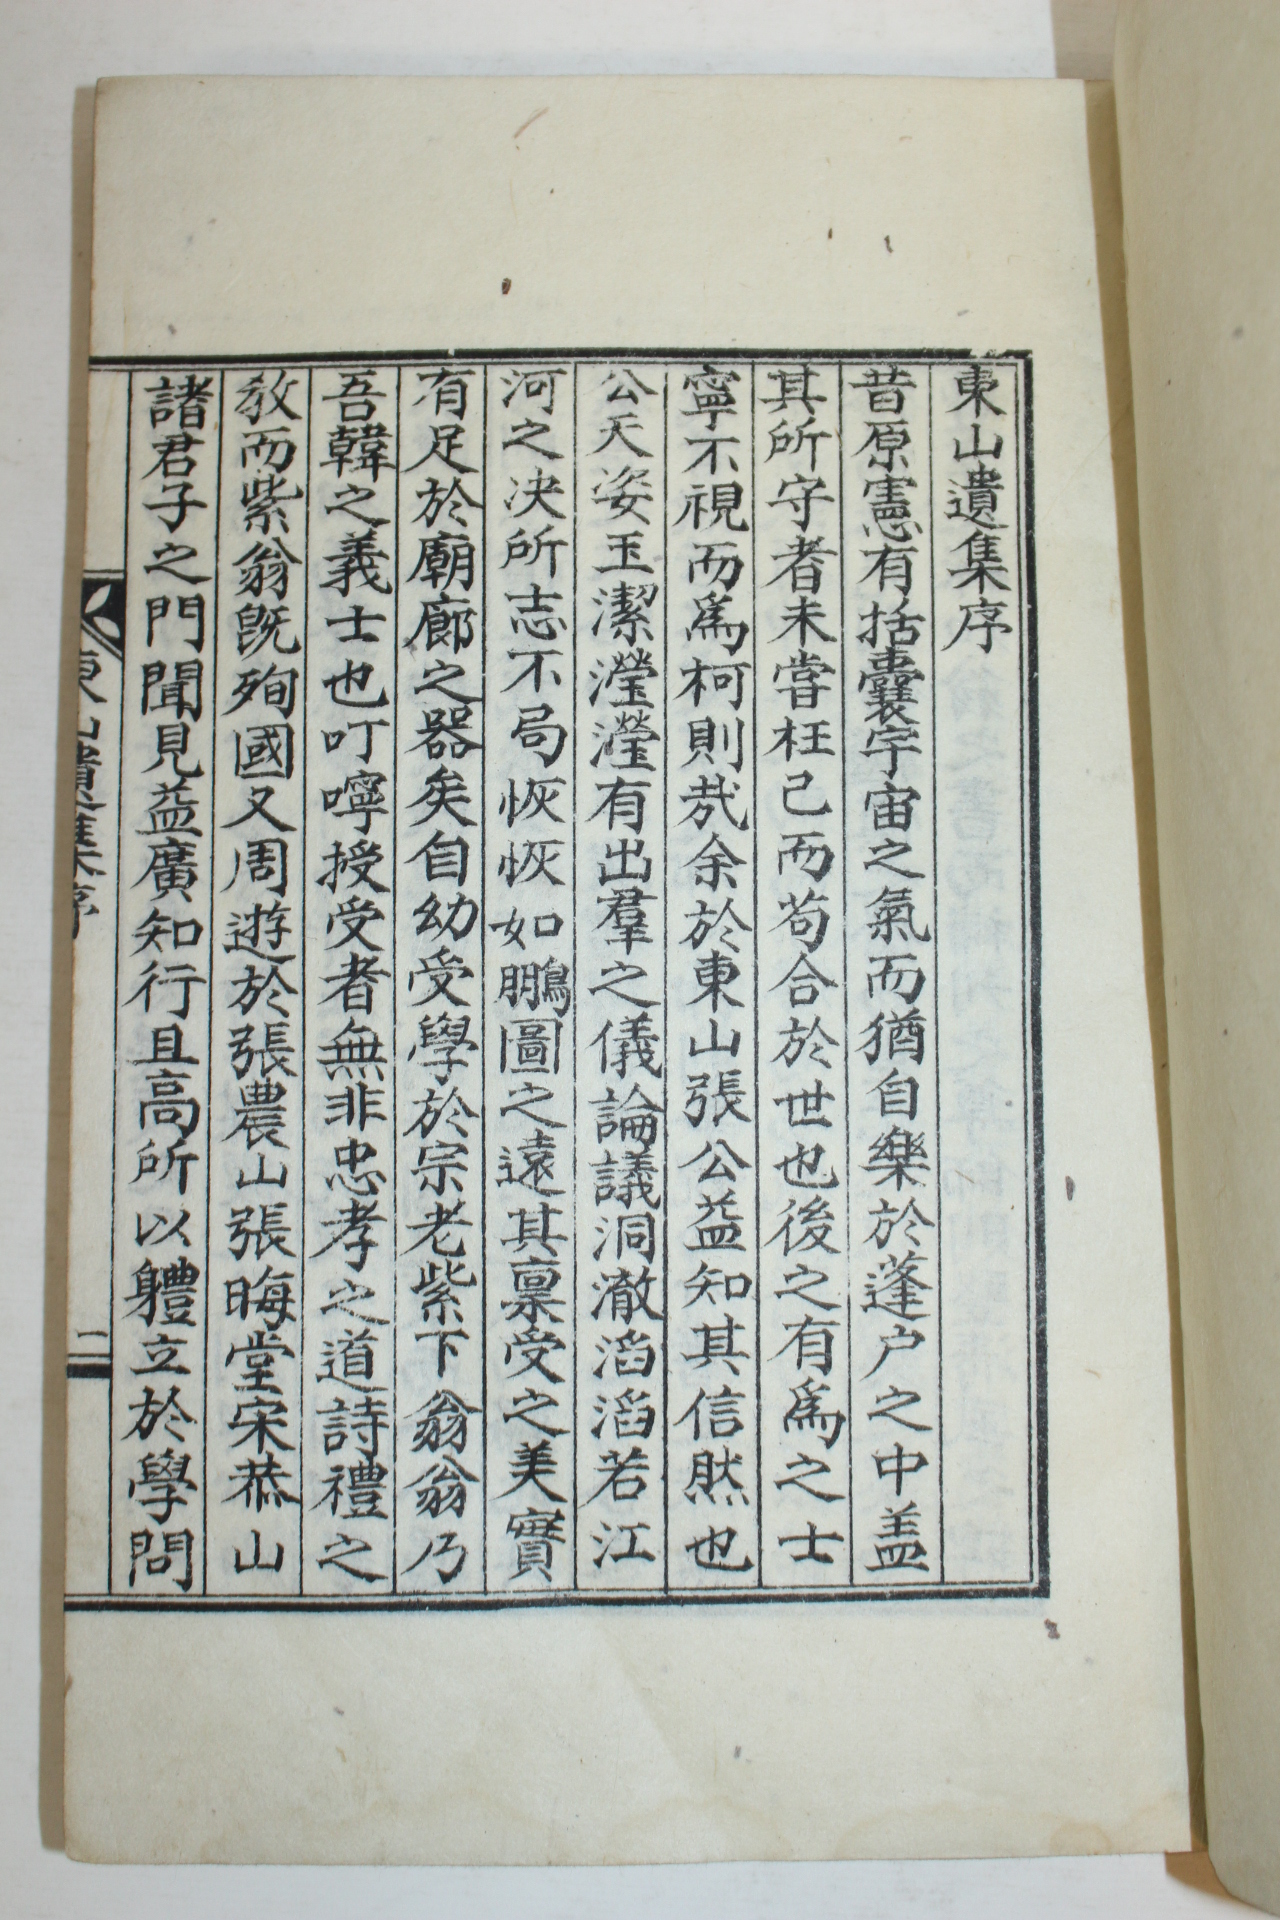 東山遺集序
昔原憲有括囊宇宙之氣而猶自樂於蓬户之中盖
其所守者未嘗枉己而苟合於世也後之有爲之士
寧不視而爲柯則哉余於東山張公益知其信然也
公天姿玉潔瀅瀅有出羣之儀論議洞澈滔滔若江
河之决所志不局恢恢如鵬圖之遠其稟受之美實
有足於廟廊之器矣自幼受學於宗老紫下翁翁乃
吾韓之義士也叮嚀授受者無非忠孝之道詩禮之
敎而紫翁旣殉國又周遊於張農山張晦堂宋恭山
諸君子之門聞見益廣知行且高所以軆立於學問
東山遺集序
二